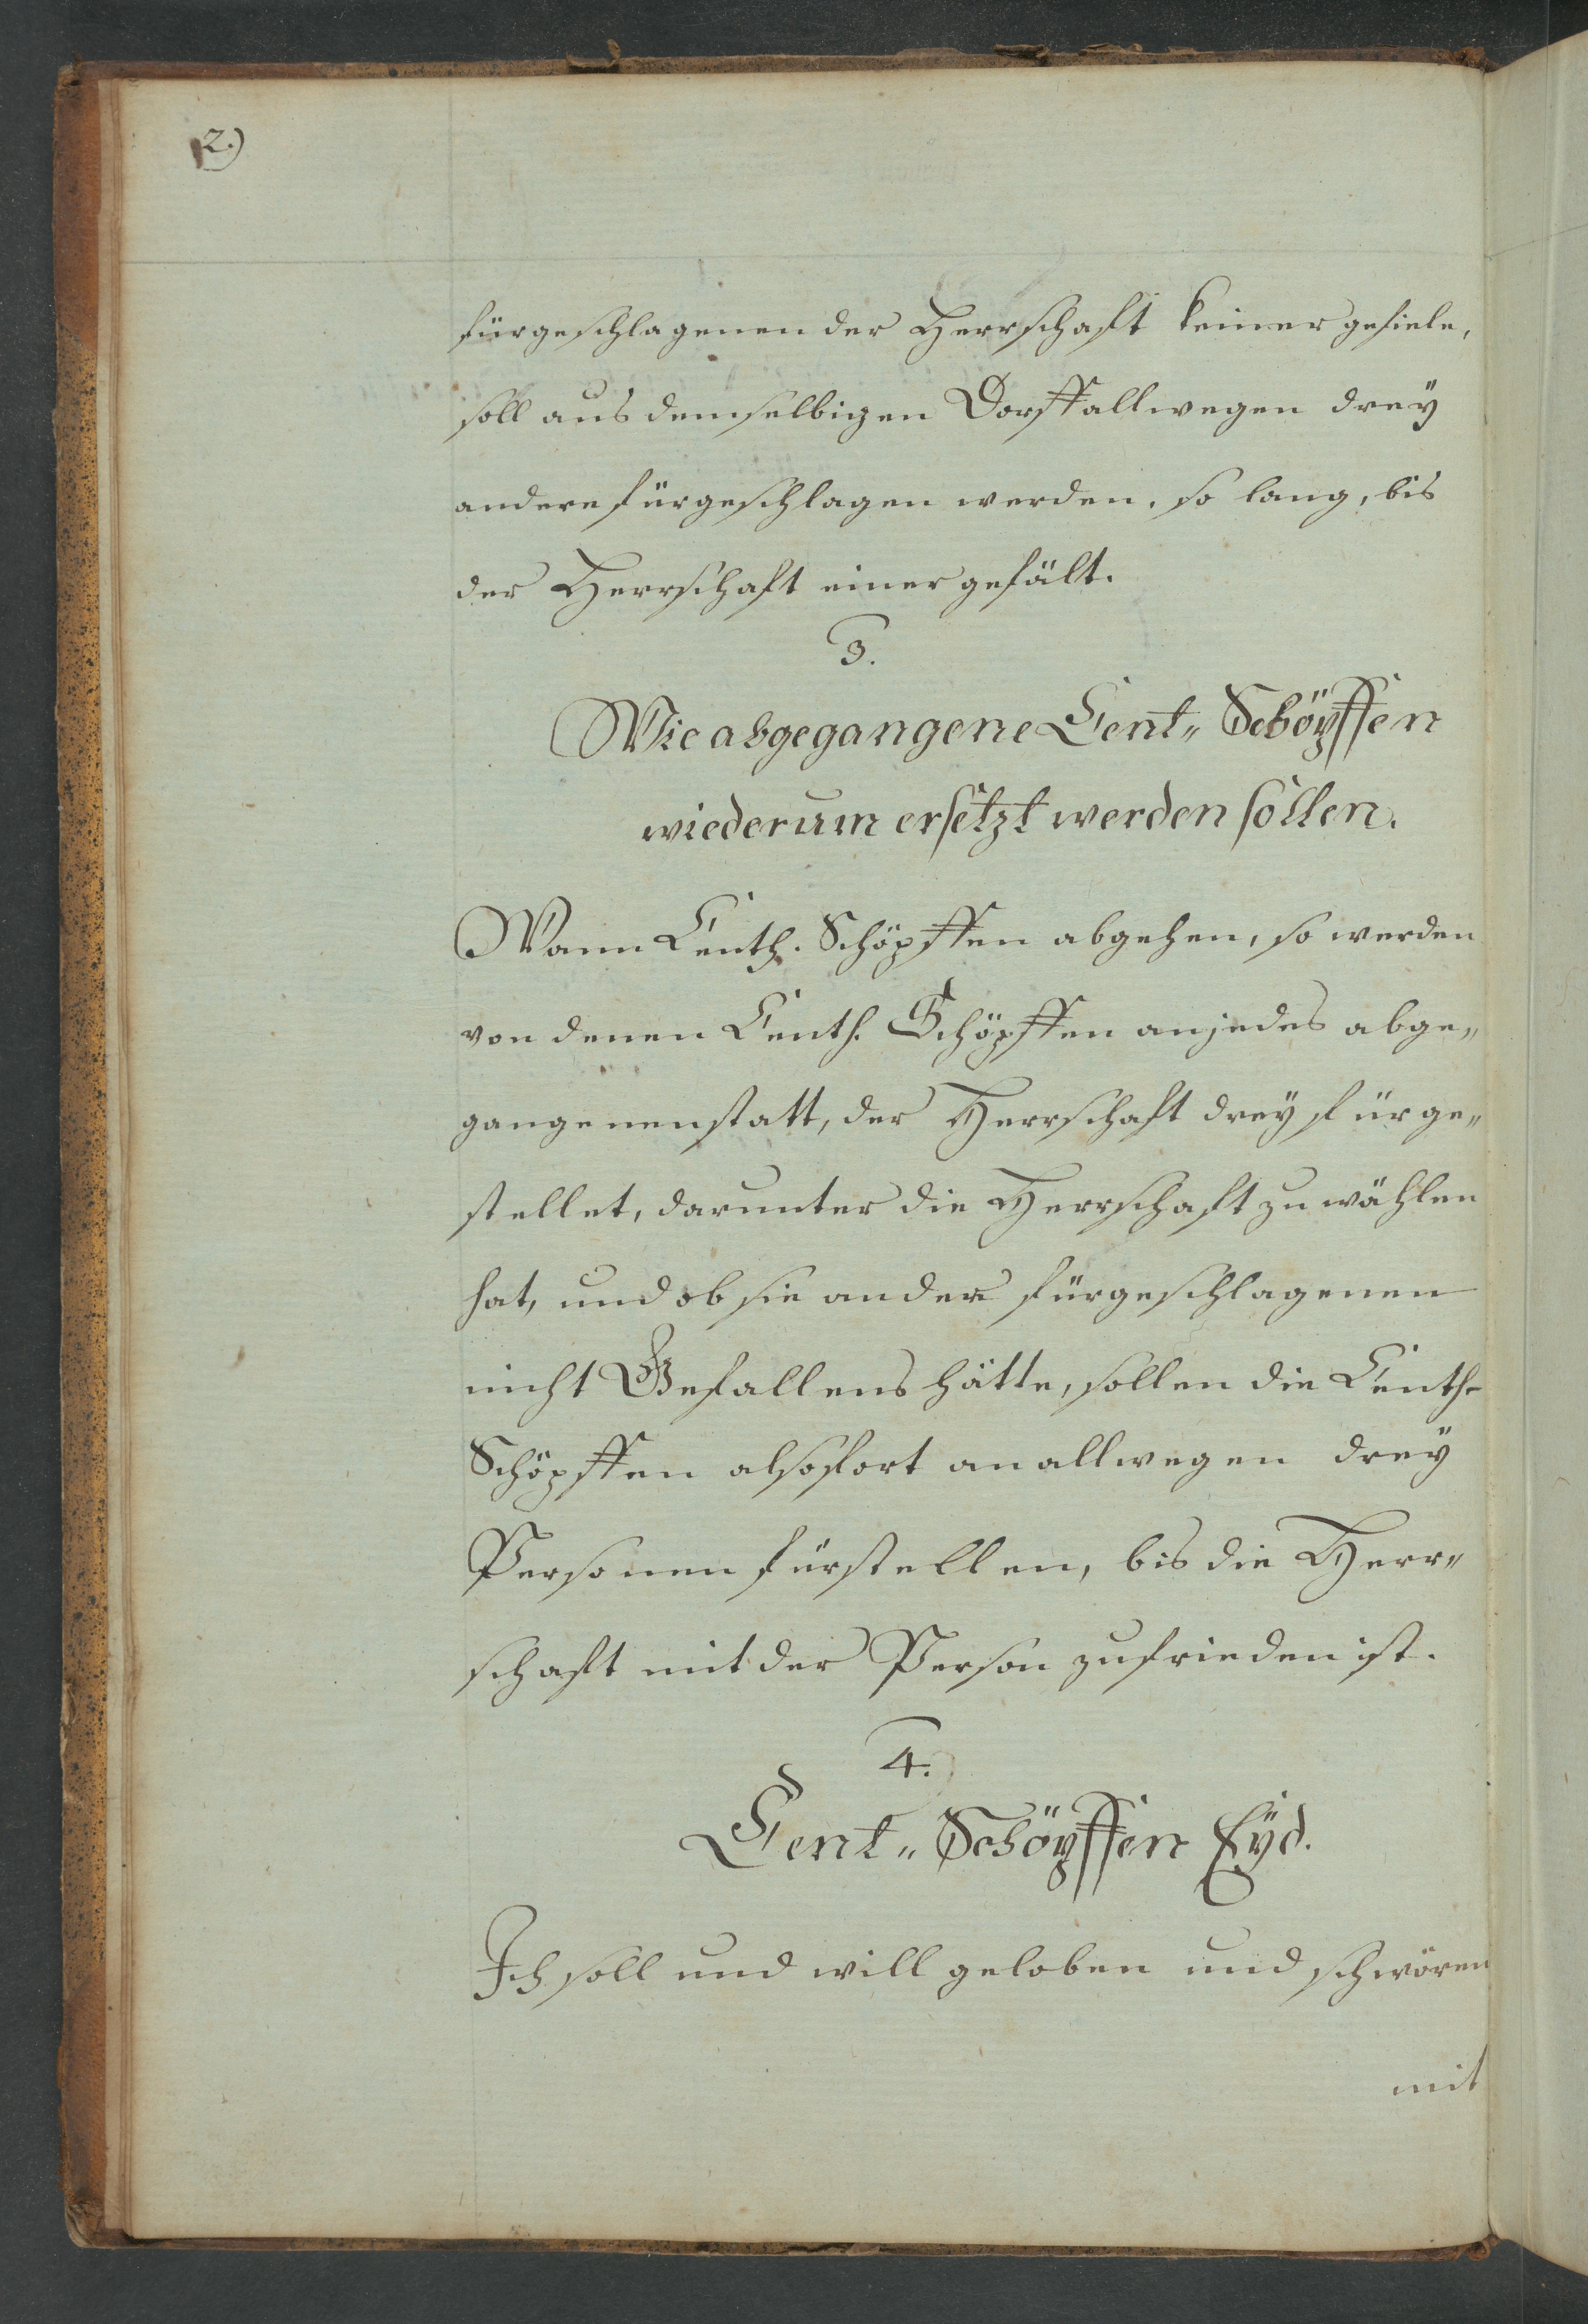 2.)
fürgeschlagenen der Herrschaft keiner gefiele,
soll aus demselbigen Dorff allwegen drey
andere fürgeschlagen werden, so lang, bis
der Herrschaft einer gefält.
3.
Wie abgegangene Cent„ Schöpffen
wiederum ersetzt werden sollen.
Wann Centh. Schöpffen abgehen, so werden
von denen Centh. Schöpffen an jedes abge„
gangenen statt, der Herrschaft drey fürge„
stellet, darunter die Herrschaft zu wählen
hat, und ob sie an der fürgeschlagenen
nicht Gefallens hätte, sollen die Centh-
Schöpffen alsofort an allwegen drey
Personen fürstellen, bis die Herr„
schaft mit der Person zufrieden ist.
4.
Cent„ Schöpffen Eyd.
Ich soll und will geloben und schwören
mit